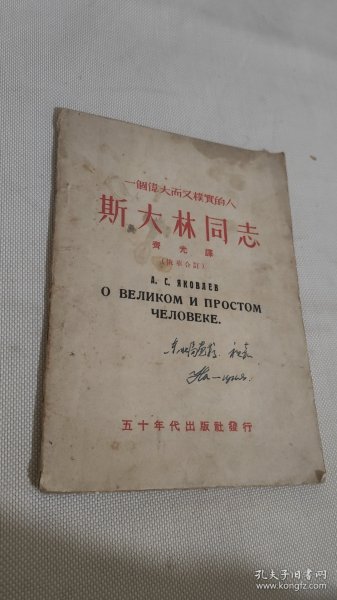 一個偉大而又樸實的人
斯大林同志
齊光譯
(俄華合訂)
А. С. ЯКОВЛЕВ
О ВЕЛИКОМ И ПРОСТОМ
ЧЕЛОВЕКЕ.
五十年代出版社發行
孔夫子旧书网
www.kongfz.com